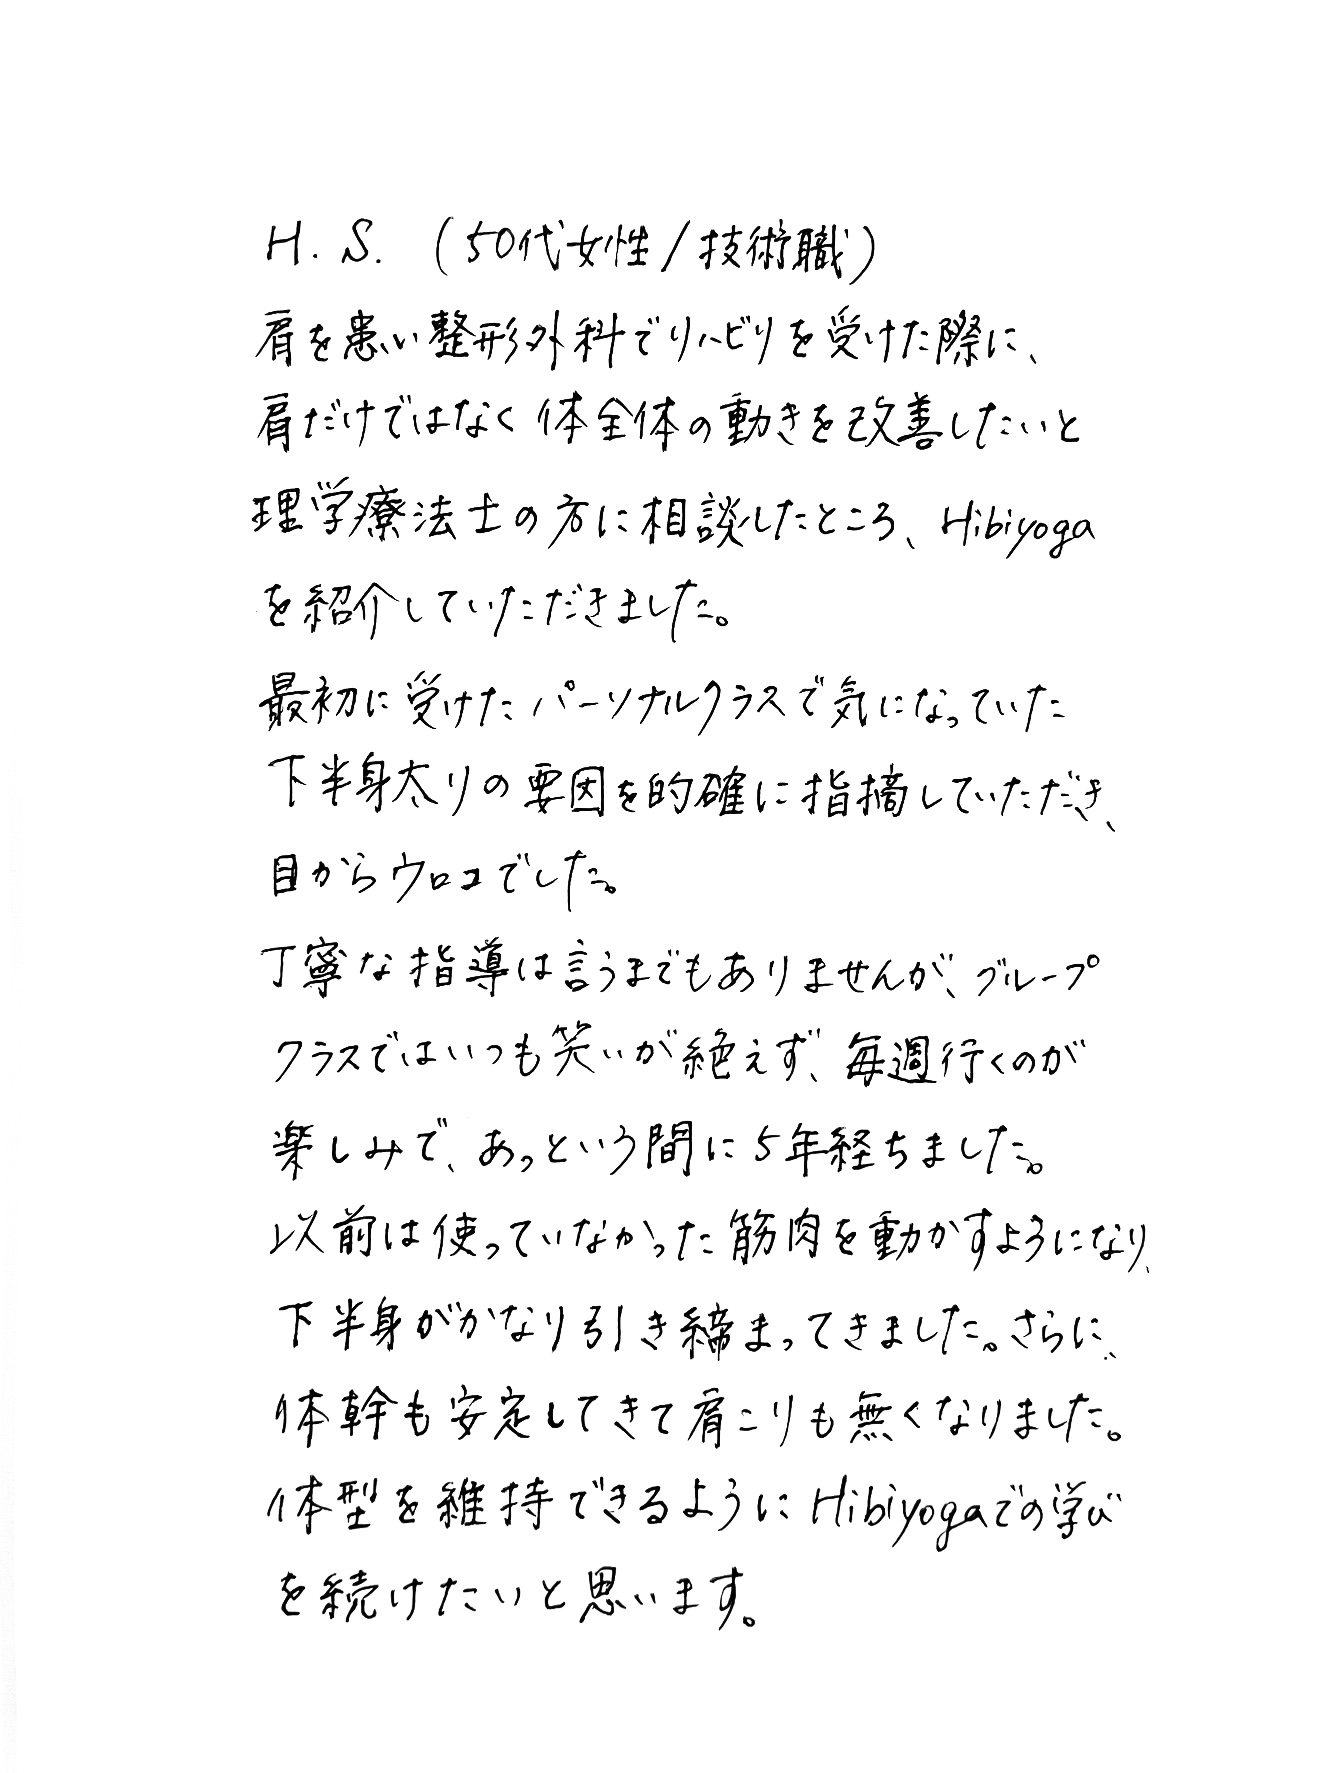 H. S. (50代女性/技術職)
肩を患い整形外科でリハビリを受けた際に、
肩だけではなく体全体の動きを改善したいと
理学療法士の方に相談したところ、Hibiyoga
を紹介していただきました。
最初に受けたパーソナルクラスで気になっていた
下半身太りの要因を的確に指摘していただき、
目からウロコでした。
丁寧な指導は言うまでもありませんが、グループ
クラスではいつも笑いが絶えず、毎週行くのが
楽しみで、あっという間に5年経ちました。
以前は使っていなかった筋肉を動かすようになり、
下半身がかなり引き締まってきました。さらに、
体幹も安定してきて肩こりも無くなりました。
体型を維持できるようにHibiyogaでの学び
を続けたいと思います。